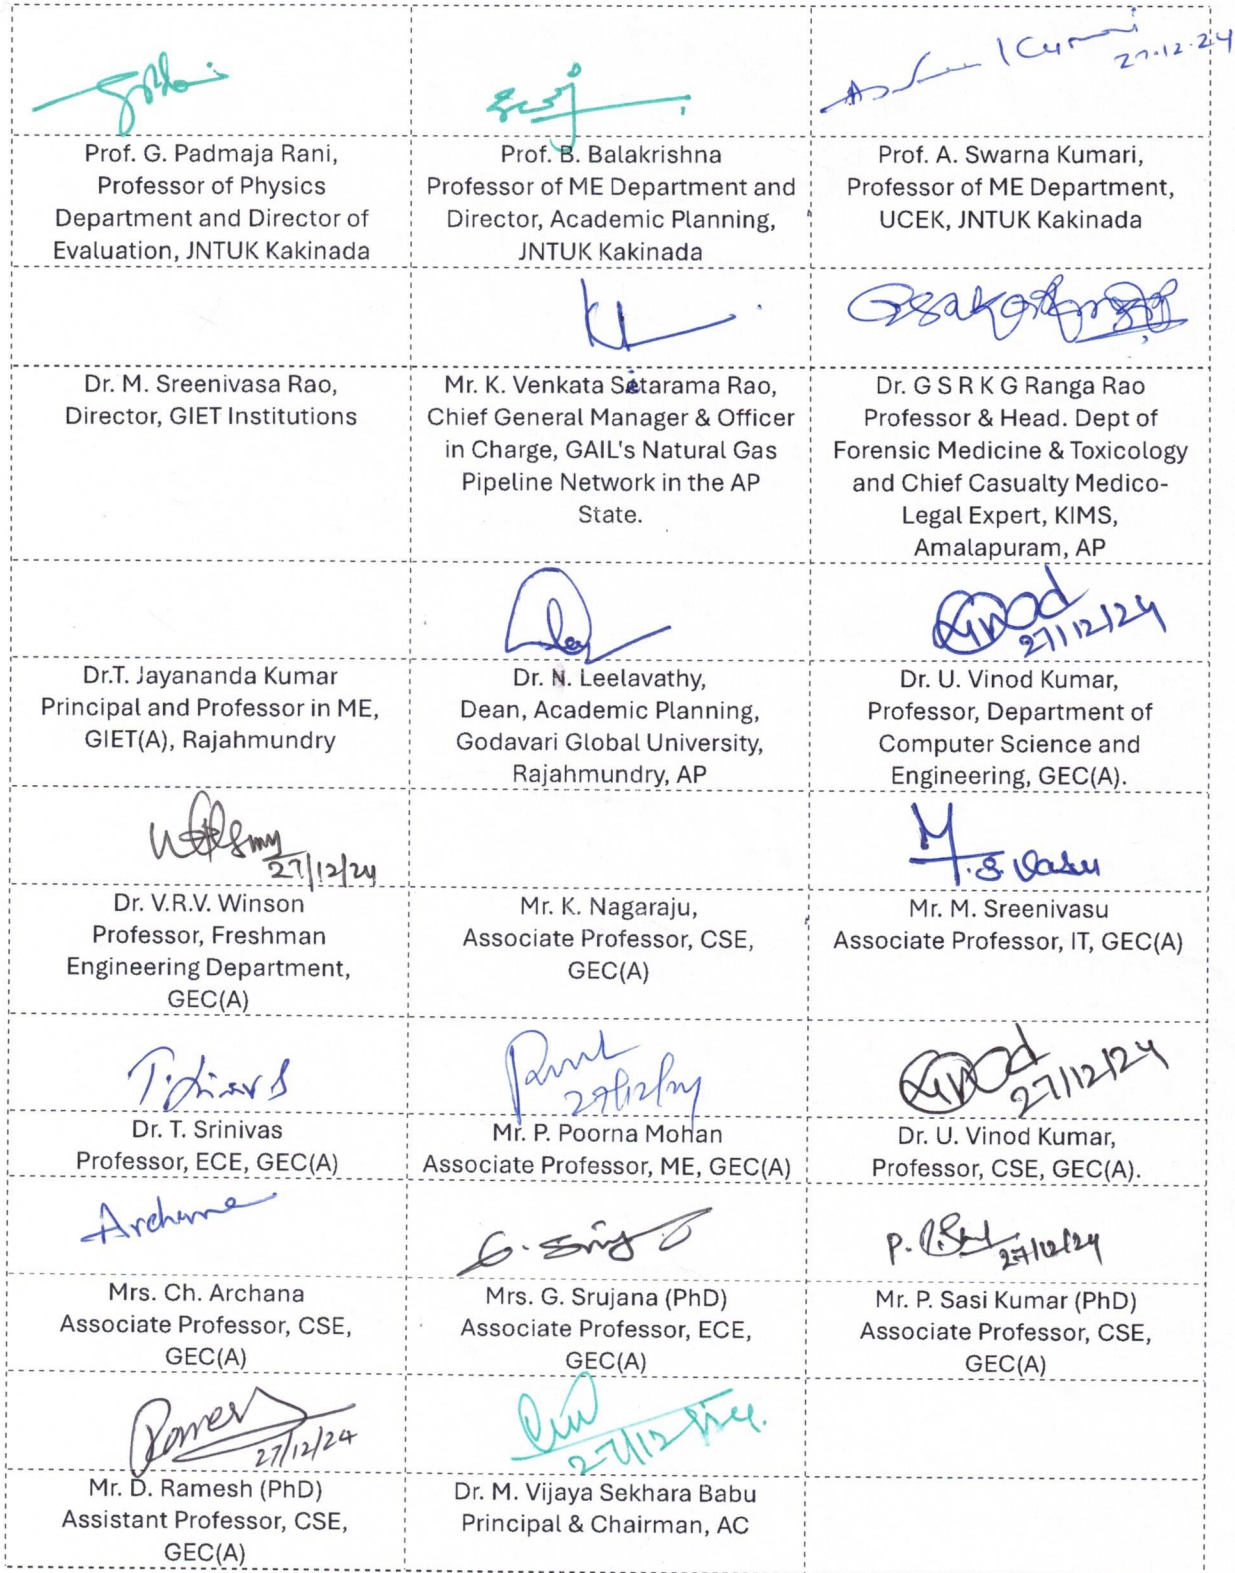 27.12.24
Prof. G. Padmaja Rani,
Professor of Physics
Department and Director of
Evaluation, JNTUK Kakinada
Prof. B. Balakrishna
Professor of ME Department and
Director, Academic Planning,
JNTUK Kakinada
Prof. A. Swarna Kumari,
Professor of ME Department,
UCEK, JNTUK Kakinada
Dr. M. Sreenivasa Rao,
Director, GIET Institutions
Mr. K. Venkata Sitarama Rao,
Chief General Manager & Officer
in Charge, GAIL's Natural Gas
Pipeline Network in the AP
State.
Dr. G S R K G Ranga Rao
Professor & Head. Dept of
Forensic Medicine & Toxicology
and Chief Casualty Medico-
Legal Expert, KIMS,
Amalapuram, AP
27/12/24
Dr.T. Jayananda Kumar
Principal and Professor in ME,
GIET(A), Rajahmundry
Dr. N. Leelavathy,
Dean, Academic Planning,
Godavari Global University,
Rajahmundry, AP
Dr. U. Vinod Kumar,
Professor, Department of
Computer Science and
Engineering, GEC(A).
27/12/24
M.S. Vasu
Dr. V.R.V. Winson
Professor, Freshman
Engineering Department,
GEC(A)
Mr. K. Nagaraju,
Associate Professor, CSE,
GEC(A)
Mr. M. Sreenivasu
Associate Professor, IT, GEC(A)
27/12/24
27/12/24
Dr. T. Srinivas
Professor, ECE, GEC(A)
Mr. P. Poorna Mohan
Associate Professor, ME, GEC(A)
Dr. U. Vinod Kumar,
Professor, CSE, GEC(A).
Archana
27/12/24
Mrs. Ch. Archana
Associate Professor, CSE,
GEC(A)
Mrs. G. Srujana (PhD)
Associate Professor, ECE,
GEC(A)
Mr. P. Sasi Kumar (PhD)
Associate Professor, CSE,
GEC(A)
Ramesh
27/12/24
27/12
Mr. D. Ramesh (PhD)
Assistant Professor, CSE,
GEC(A)
Dr. M. Vijaya Sekhara Babu
Principal & Chairman, AC